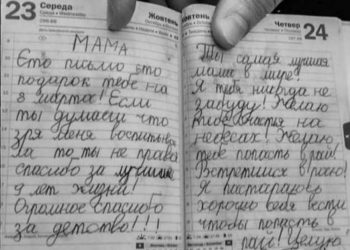 23 Середа
Жовтень
МАМА
Єто письмо это
подарок тебе на
8 марта! Если
ты думаеш что
зря меня воспитыва
ла то ты не права
спасибо за лучшие
9 лет жизни!
Огромное спасибо
за детство!!!
Жовтень
Четвер 24
Ты самая лучшая
мама в мире!
Я тебя никогда не
забуду! Желаю
тебе счастья на
небесах! Желаю
тебе попасть в рай!
Встретимся в раю!
Я постараюсь
хорошо себя вести
чтобы попасть в
рай! Целую